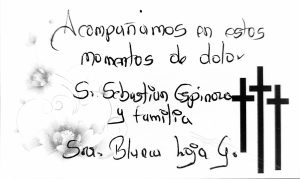 Acompañamos en estos
momentos de dolor
S. Sebastian Espinoza
y familia
Sra. Blanca Loja G.